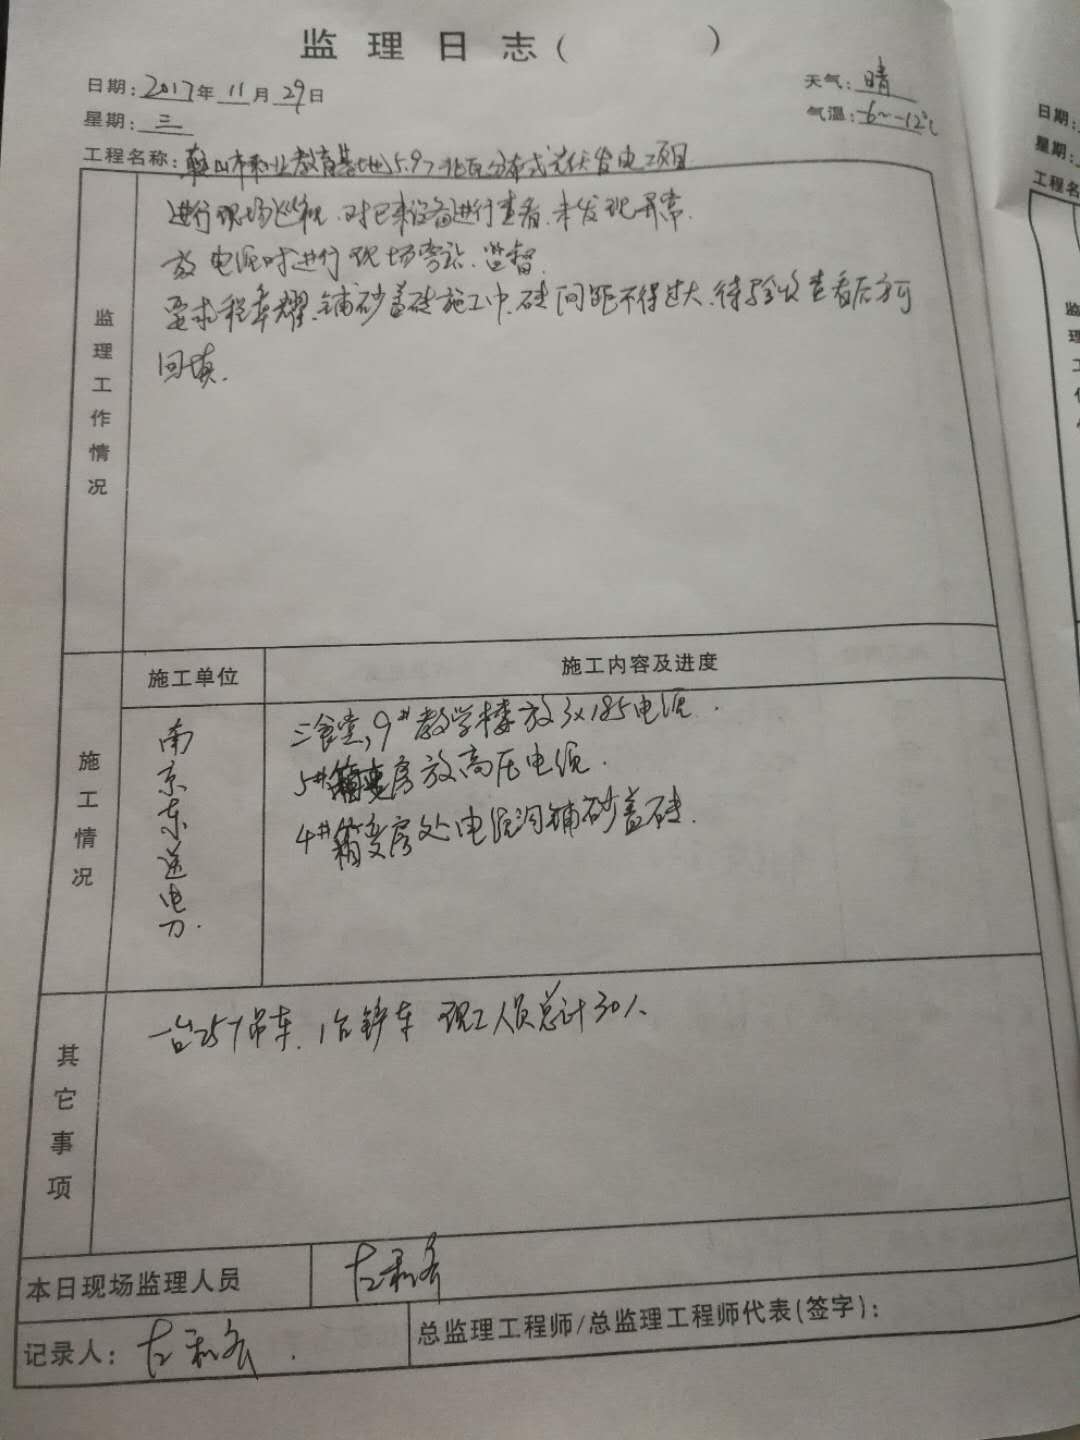 监理日志（　　　）
日期：2017年11月29日
天气：晴
星期：三
气温：-6~-12℃
工程名称：鞍山市职业教育基地5.97兆瓦分布式光伏发电项目
监理工作情况
进行现场巡视，对已来设备进行查看，未发现异常。
放电缆时进行现场旁站、监督。
要求程幸耀，铺砂盖砖施工中，砖间距不得过大，待验收查看后方可
回填。
施工情况
施工单位
施工内容及进度
南京东送电力.
三食堂，9#教学楼放3x185电缆．
5#箱变房放高压电缆．
4#箱变房处电缆沟铺砂盖砖．
其它事项
一台25T吊车、1台铲车 现工人员总计30人
本日现场监理人员
记录人：
总监理工程师/总监理工程师代表（签字）：